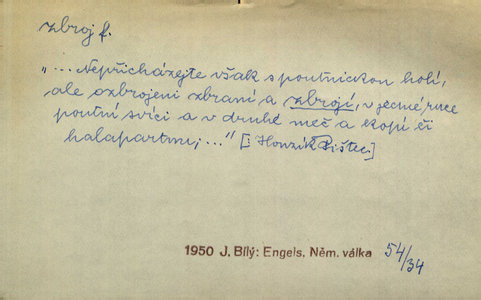 zbroj f.
„... Nepřicházejte však s poutnickou holí,
ale ozbrojeni zbraní a zbrojí, v jedné ruce
poutní svíci a v druhé meč a kopí či
halapartnu; ..." [: Honzík Pištec.]
1950 J. Bílý: Engels, Něm. válka 54/34